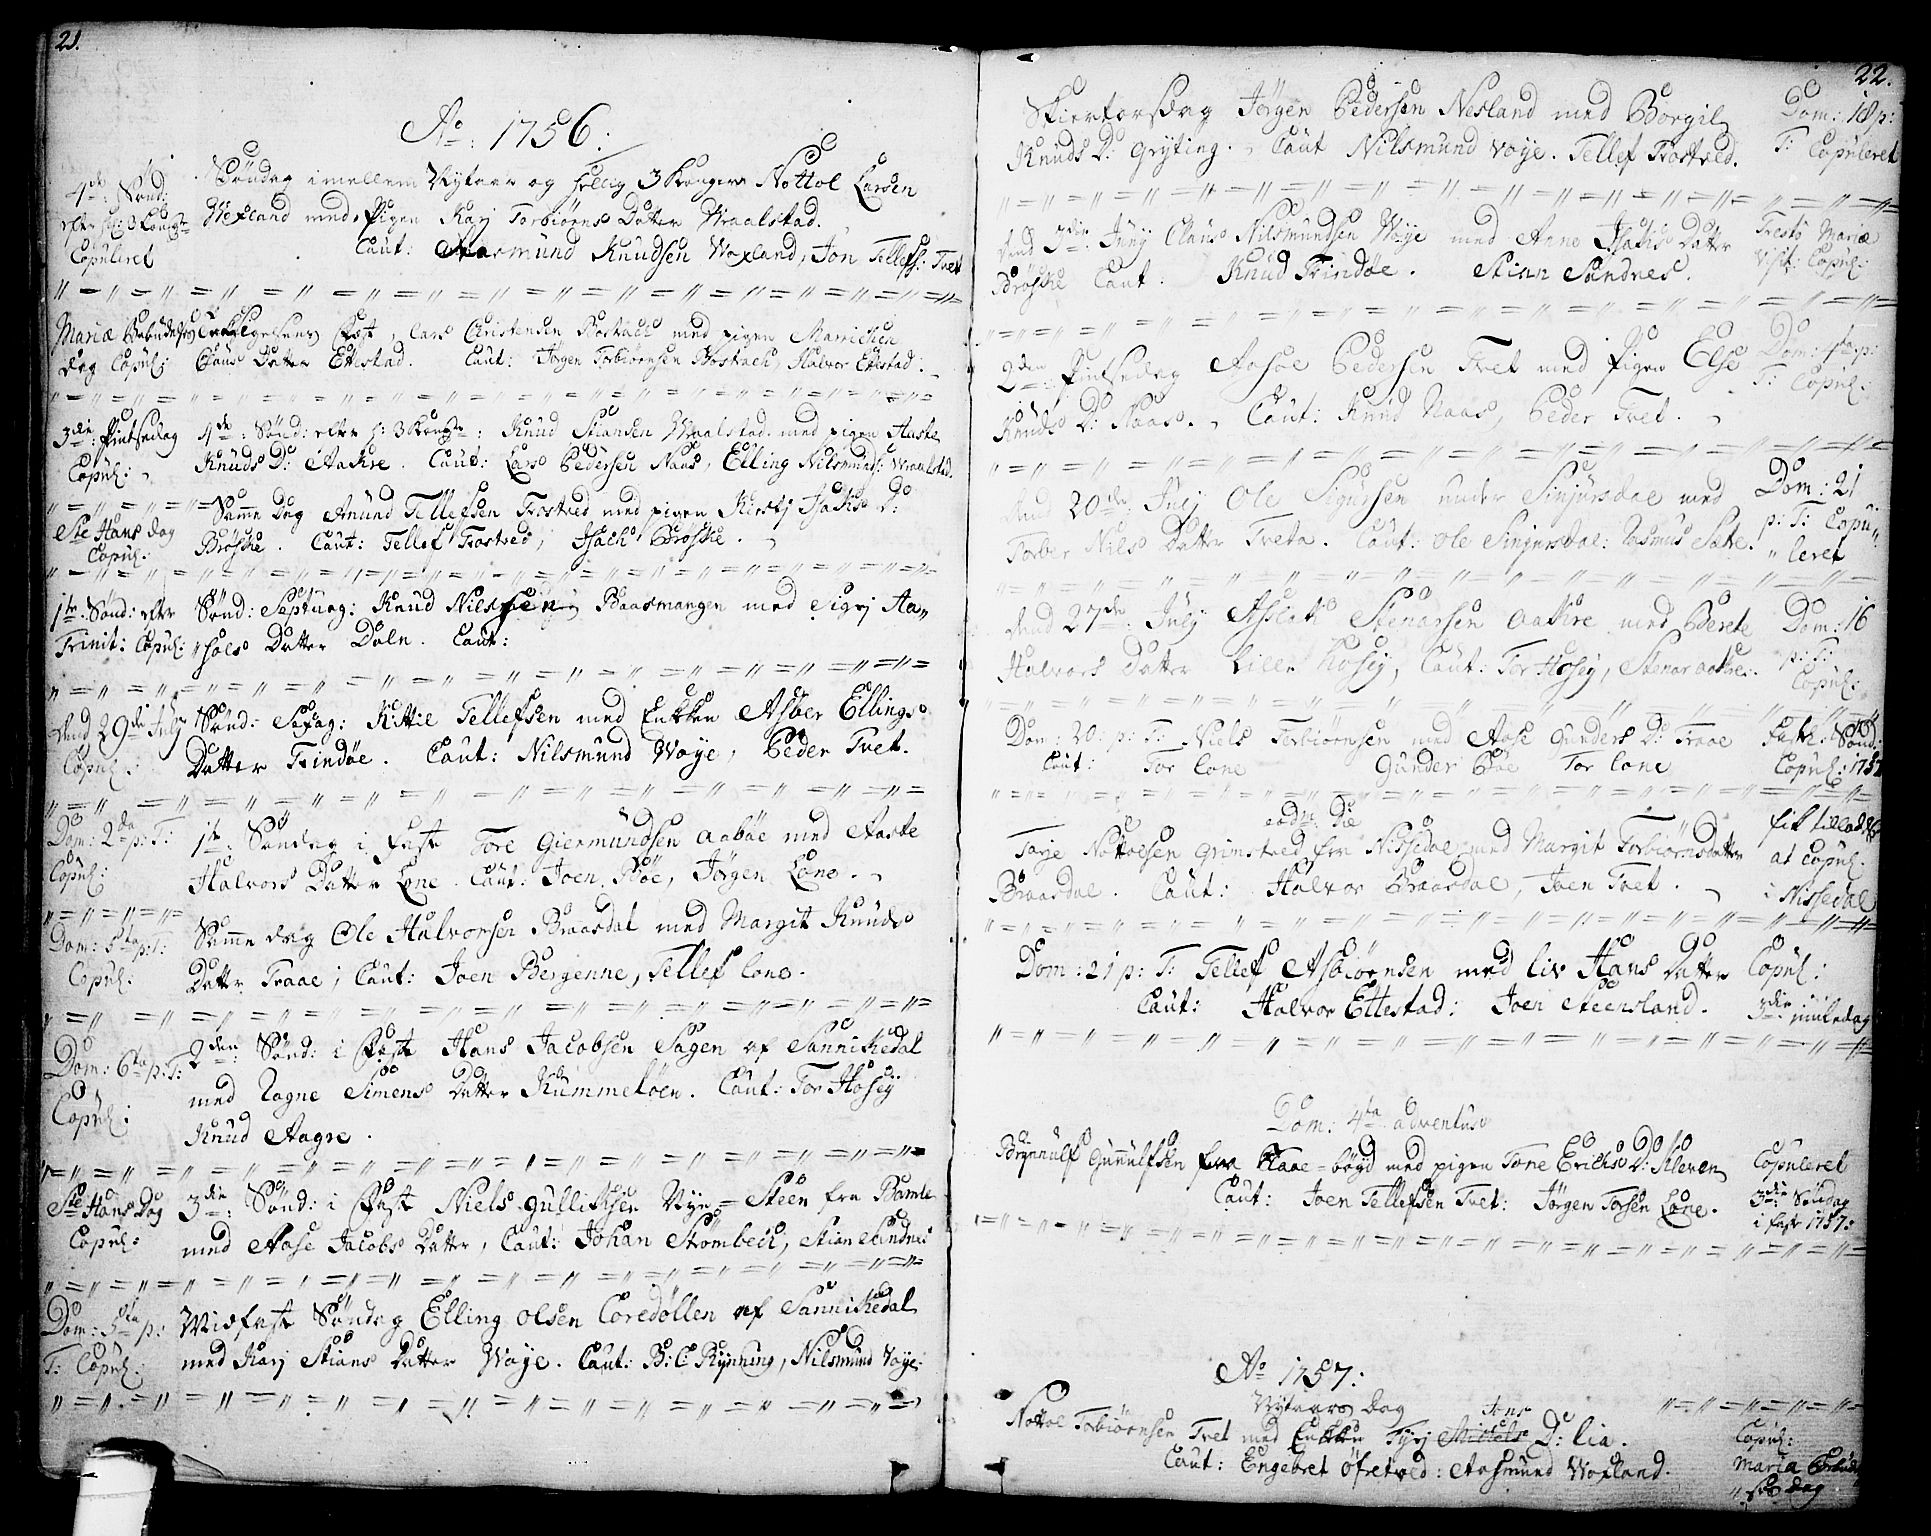 21.
Ao: 1756:
4de: Sønd:
efter hl: 3 Kong:
Copuleret
Søndag imellem Nytaar og hellig 3 Konger Nottol Larsen
Woxland med Pigen Karj Torbiørns Datter Wraalstad.
Caut: Aasmund Knudsen Woxland, Jon Tellefs: Tvet
Mariæ Bebudelses
dag Copul:
Fest, Lars Christensen Bostrach med pigen Marrichen
Claus Datter Ettestad. Caut: Jørgen Torbiørnsen Bostrach, Halvor Ettestad.
3die: Pintsedag
Copul:
4de: Sønd: efter h: 3 Kong: Knud Stiansen Wraalstad med pigen Aaste
Knuds D: Aakre. Caut: Lars Pedersen Naas, Elling Nilsmunds: Wraalstad.
Ste Hans dag
Copul:
Samme Dag Anund Tellefsen Trostved med pigen Kirstj Isachs D:
Brøsche. Caut: Tellef Trostved, Isach Brøsche.
1te: Sønd: efter
Trinit: Copul:
Sønd: Septuag: Knud Nilssen Baasmangen med Sigrj Aa„
„sols Datter Daln. Caut:
dend 29de July
Copul:
Sønd: Sexag: Kittil Tellefsen med Enkken Asber Ellings
Datter Trindøe. Caut: Nilsmund Woye, Peder Tvet.
Dom: 2da p: T:
Copul:
1te Søndag i Faste Tore Giermundsen Aabøe med Aaste
Halvors Datter Lone. Caut: Joen Bøe, Jørgen Lone.
Dom: 5ta p: T:
Copul:
Samme dag Ole Halvorsen Braasdal med Margit Knuds
Datter Traae, Caut: Joen Bergenne, Tellef Lone.
Dom: 6ta p: T:
Copul:
2den Sønd: i Faste Hans Jacobsen Sagen af Sannikedal
med Ragne Simens Datter Kummeløen. Caut: Tor Hosey
Knud Aagre.
Ste Hans Dag
Copul:
3die: Sønd: i Faste Niels Gullichsen Nye=Steen fra Bamle
med Aase Jacobs Datter, Caut: Johan Strømbech, Stian Sandnes
Dom: 5ta p:
T: Copul:
Midfaste Søndag Elling Olsen Coredøllen af Sannikedal
med Karj Stians Datter Woye. Caut: B: C Rynning, Nilsmund Voye.
22.
Skiertorsdag Jørgen Pedersen Nesland med Borgil
Knuds D: Gryting. Caut Nilsmund Voye. Tellef Trostved.
Dom: 18 p:
T: Copuleret
dend 3die Juny Claus Nilsmundsen Woye med Anne Isachs Datter
Brøsche Caut: Knud Trindøe. Stian Sandnes.
Festo Mariæ
Visit: Copul:
2den Pintsedag Aasol Pedersen Tvet med Pigen Else
Knuds D: Naas. Caut: Knud Naas, Peder Tvet.
Dom: 4ta p:
T: Copul:
dend 20de July Ole Sigursen under Sinjursdal med
Torber Nils Datter Tveta. Caut: Ole Sinjursdal: Rasmus Sætre.
Dom: 21
p: T: Copu„
„leret
dend 27de July Asslach Stenarsen Aakre med Berete
Halvors Datter Lille Hosey, Caut: Tor Hosey, Stenar Aakre.
Dom: 16
p: T:
Copul:
Dom: 20: p: T: Niels Torbiørnsen med Aase Gunders D: Traae
Caut: Tor Lone Gunder Bøe Tor Lone
Faste: Sønd:
Copul: 1757
eodem Die
Tarje Nottolsen Grimstved fra Nissedal med Margit Torbiørnsdatter
Braasdal. Caut: Halvor Braasdal, Joen Tvet.
fik tillad:
at Copul:
i Nissedal
Dom: 21 p: T: Tellef Asbiørnsen med Liv Hans Datter
Caut: Halvor Ettestad: Joen Steensland.
Copul:
3die juuledag
Dom: 4ta adventus
Brynnulf Gunnulfsen fra Flaae=bøyd med pigen Tone Erichs D: Kleven
Caut: Joen Tellefsen Tvet: Jørgen Torsen Lone.
Copuleret
3die Søndag
i faste 1757:
Ao 1757:
Nytaars Dag
Nottol Torbiørnsen Tvet med Enkken Tyrj Michels Jens D: Lia.
Caut: Engebret Øfretved: Aasmund Woxland.
Copul:
Maria Bebud„
„selses dag